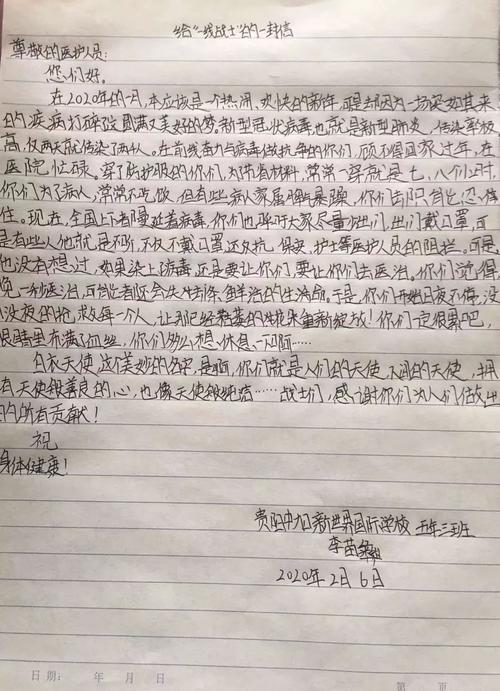 给“一线战士”的一封信
尊敬的医护人员:
您们好。
在2020年的一月,本应该是一个热闹、欢快的新年,可是却因为一场突如其来
的疾病打碎这圆满又美好的梦。新型冠状病毒也就是新型肺炎,传染率极
高,仅两天就传染了两人。在前线奋力与病毒做抗争的你们,顾不得回家过年,在
医院忙碌。穿了防护服的你们,为节省材料,常常一穿就是七、八个小时,
你们为了病人,常常不吃饭,但有些病人家属脾气暴躁,你们却只首忍
住。现在,全国上下都蔓延着病毒,你们也呼吁大家尽量少出门,出门戴口罩,可
是有些人他就是不听,不仅不戴口罩还反抗保安、护士等医护人员的阻拦,可是
他没有想过,如果染上病毒还是要让你们,要让你们去医治,你们觉得
晚一秒医治,可能患者还会失去一条鲜活的生命。于是,你们开始日夜不停,没
日没夜的抢救每一个人,让那已经枯萎的花朵重新绽放!你们一定很累吧,
眼睛里布满了血丝,你们多么想休息一下啊……
白衣天使这个美妙的名字,是啊,你们就是人们的天使,人间的天使,拥
有天使般善良的心,也像天使般纯洁……战士们,感谢你们为人们做出
的所有贡献!
祝
身体健康!
贵阳中加新世界国际学校 五年三班
李苗
2020年2月6日
日期: 年 月 日
第 页